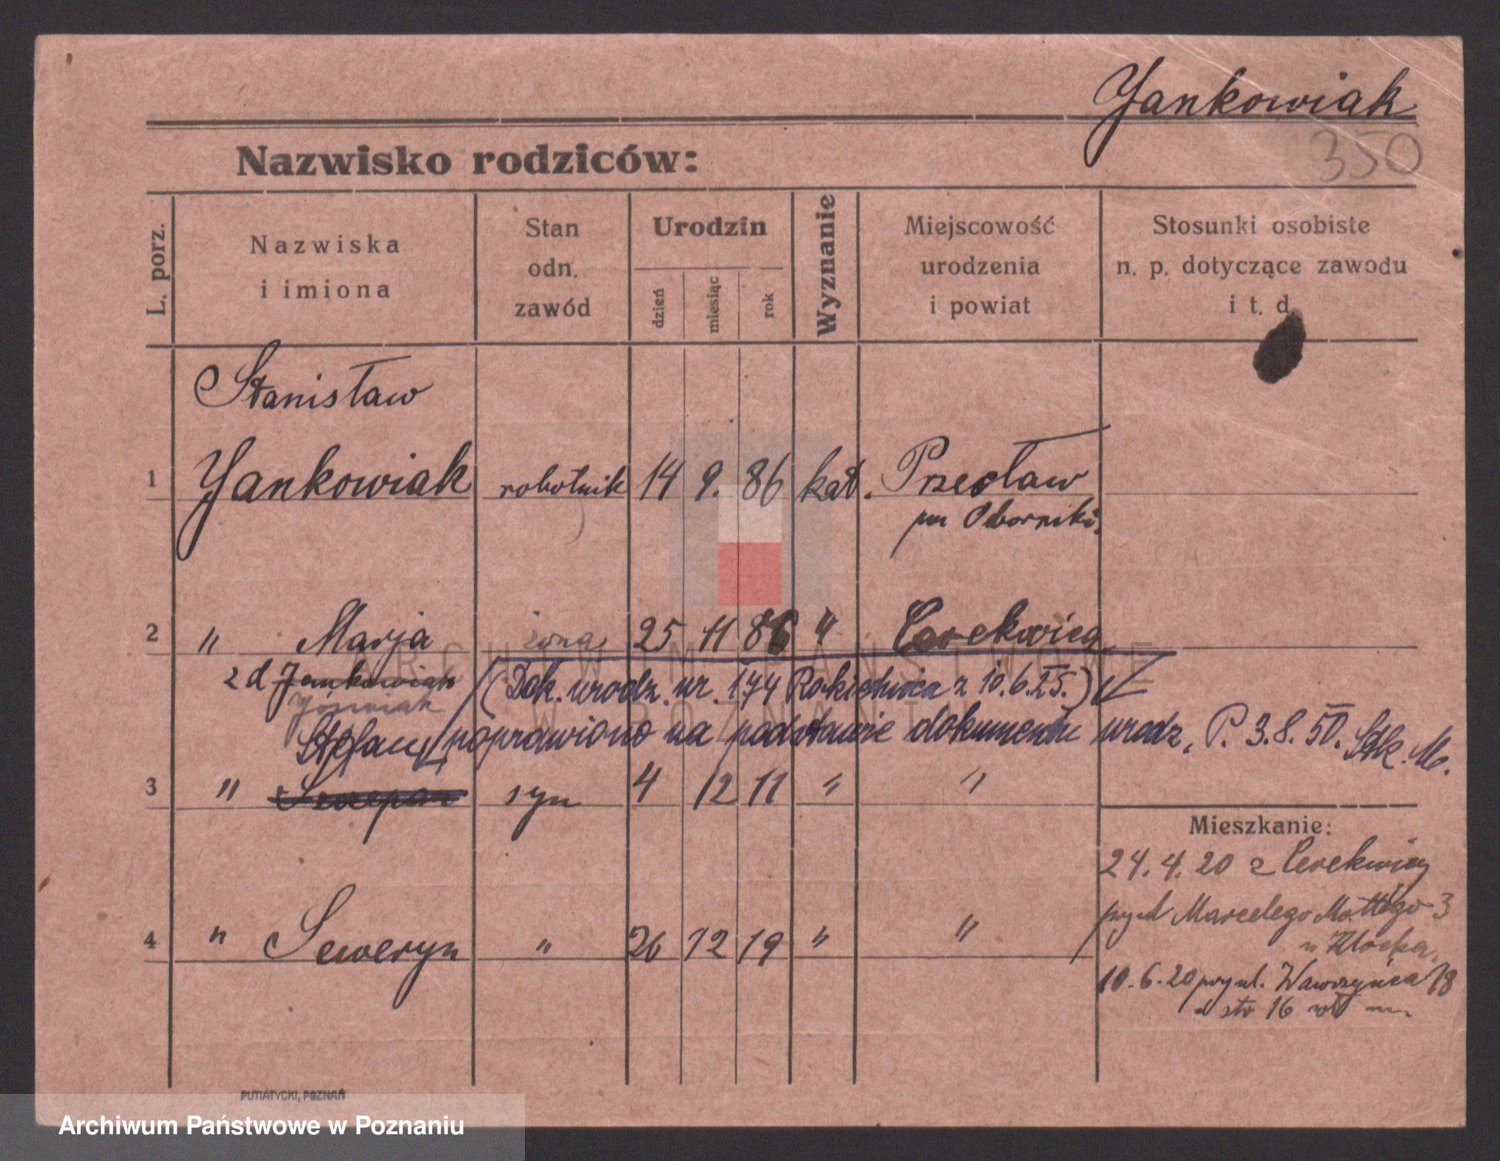 Yankowiak
350
Nazwisko rodziców:
L. porz.
Nazwiska
i imiona
Stan
odn.
zawód
Urodzin
dzień
miesiąc
rok
Wyznanie
Miejscowość
urodzenia
i powiat
Stosunki osobiste
n. p. dotyczące zawodu
i t. d.
Stanisław
1 Yankowiak robotnik 14 9. 86 kat. Przecław
pw Oborniki.
2 " Marja żona 25 11 86 " Cerekwica
z d Jankowiak (Dok. urodz. nr. 174 Rokietnica z 10.6.25.)
Jóźwiak
Stefan poprawiono na podstawie dokumentu urodz. P. 3.8.50.
3 " Szczepan syn 4 12 11 " "
Mieszkanie:
24.4.20 z Cerekwicy
Marcelego Mottego 3
4 " Seweryn " 26 12 19 " "
10.6.20 przy ul. Wawrzyńca 18
16
PUTIATYCKI, POZNAŃ
ARCHIWUM PAŃSTWOWE
W POZNANIU
Archiwum Państwowe w Poznaniu